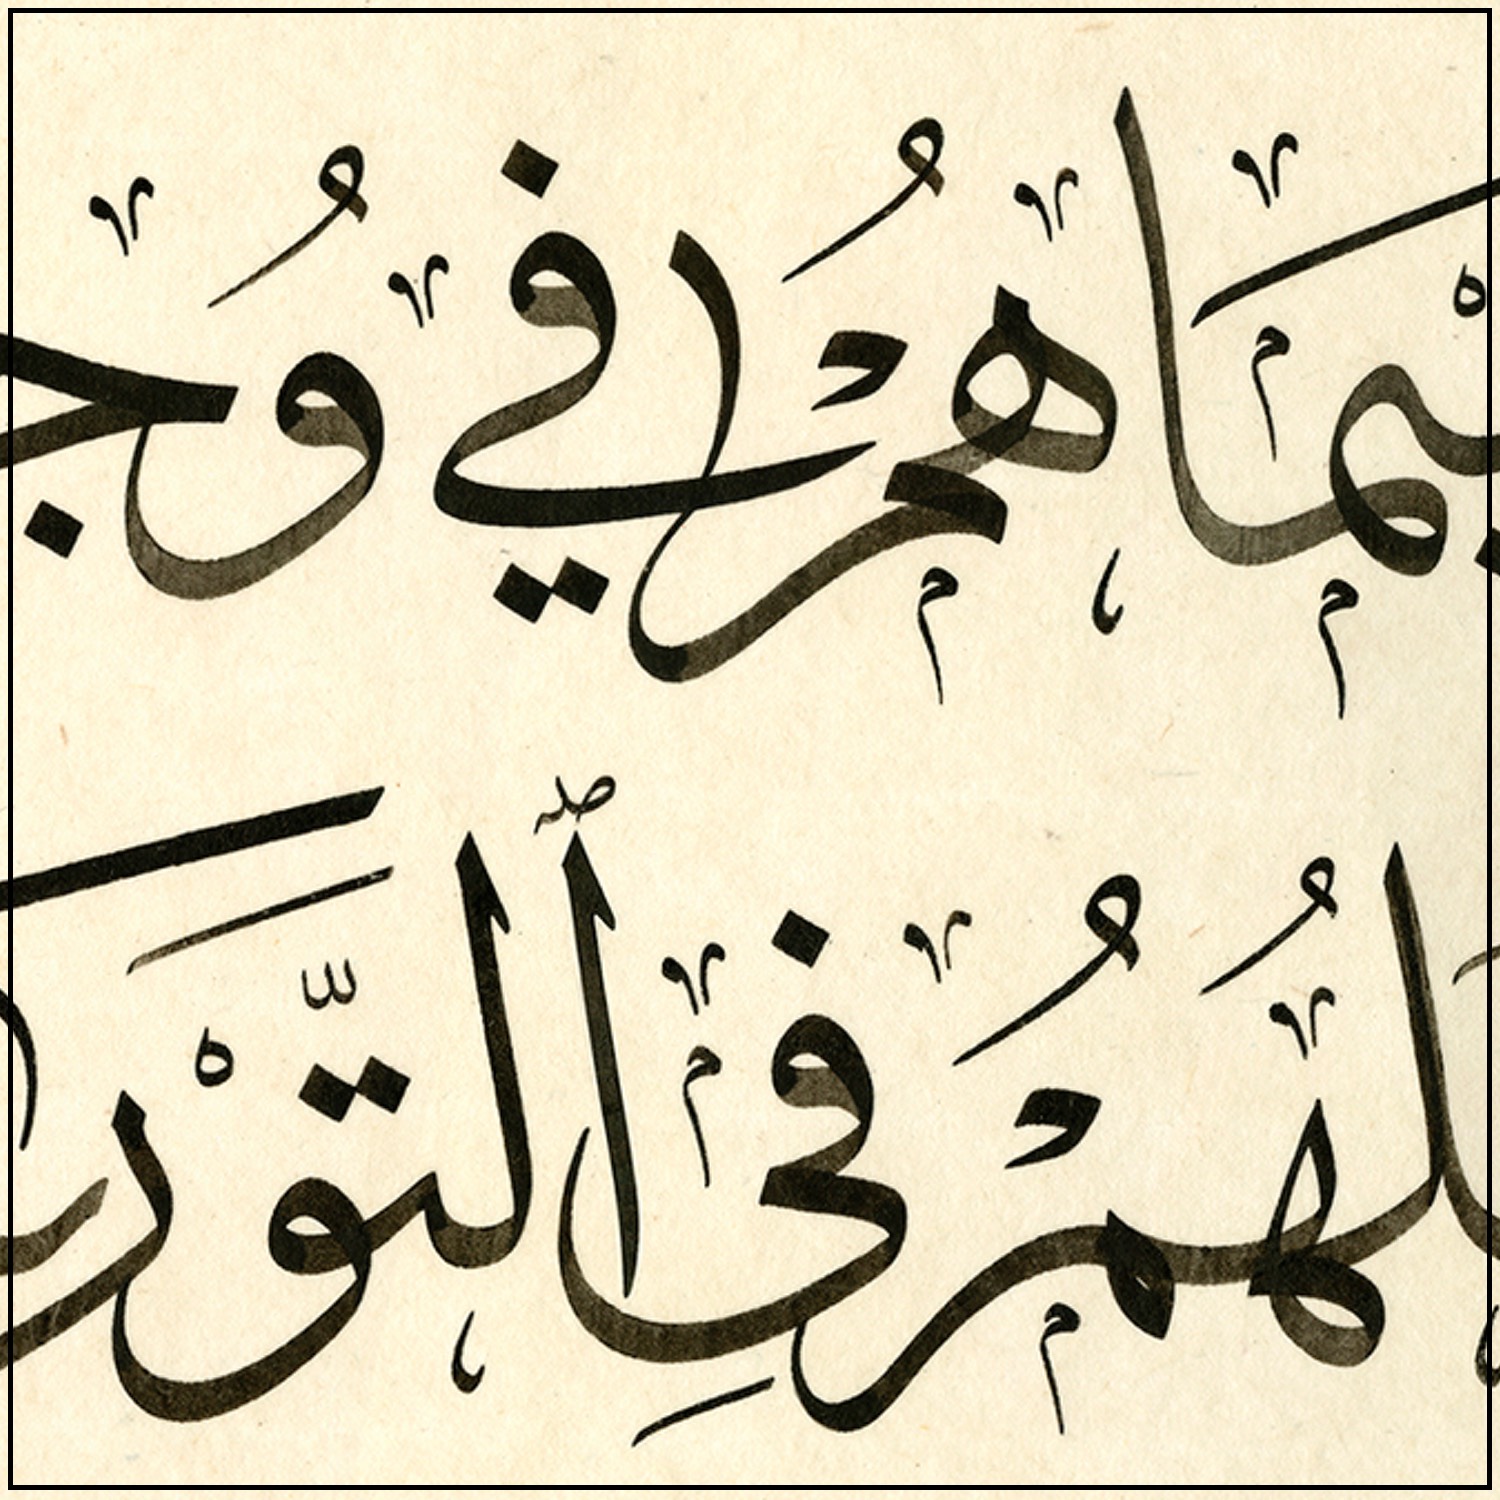 يمَاهُمْ في وُج
لُهُمْ فِى ٱلتَّوْر